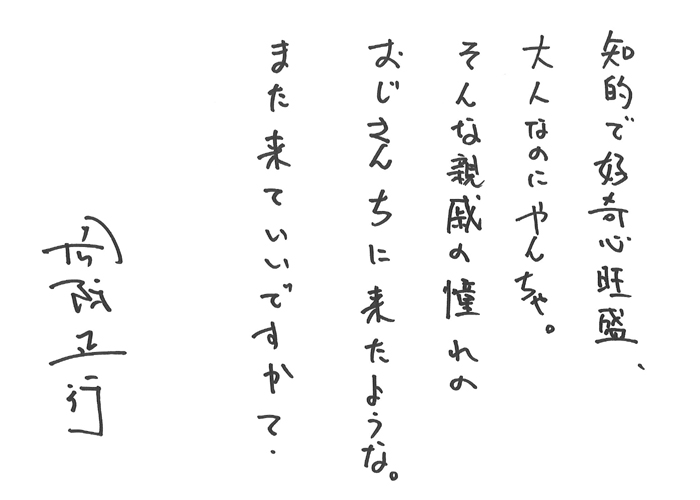 知的で好奇心旺盛、
大人なのにやんちゃ。
そんな親戚の憧れの
おじさんちに来たような。
また来ていいですかて.